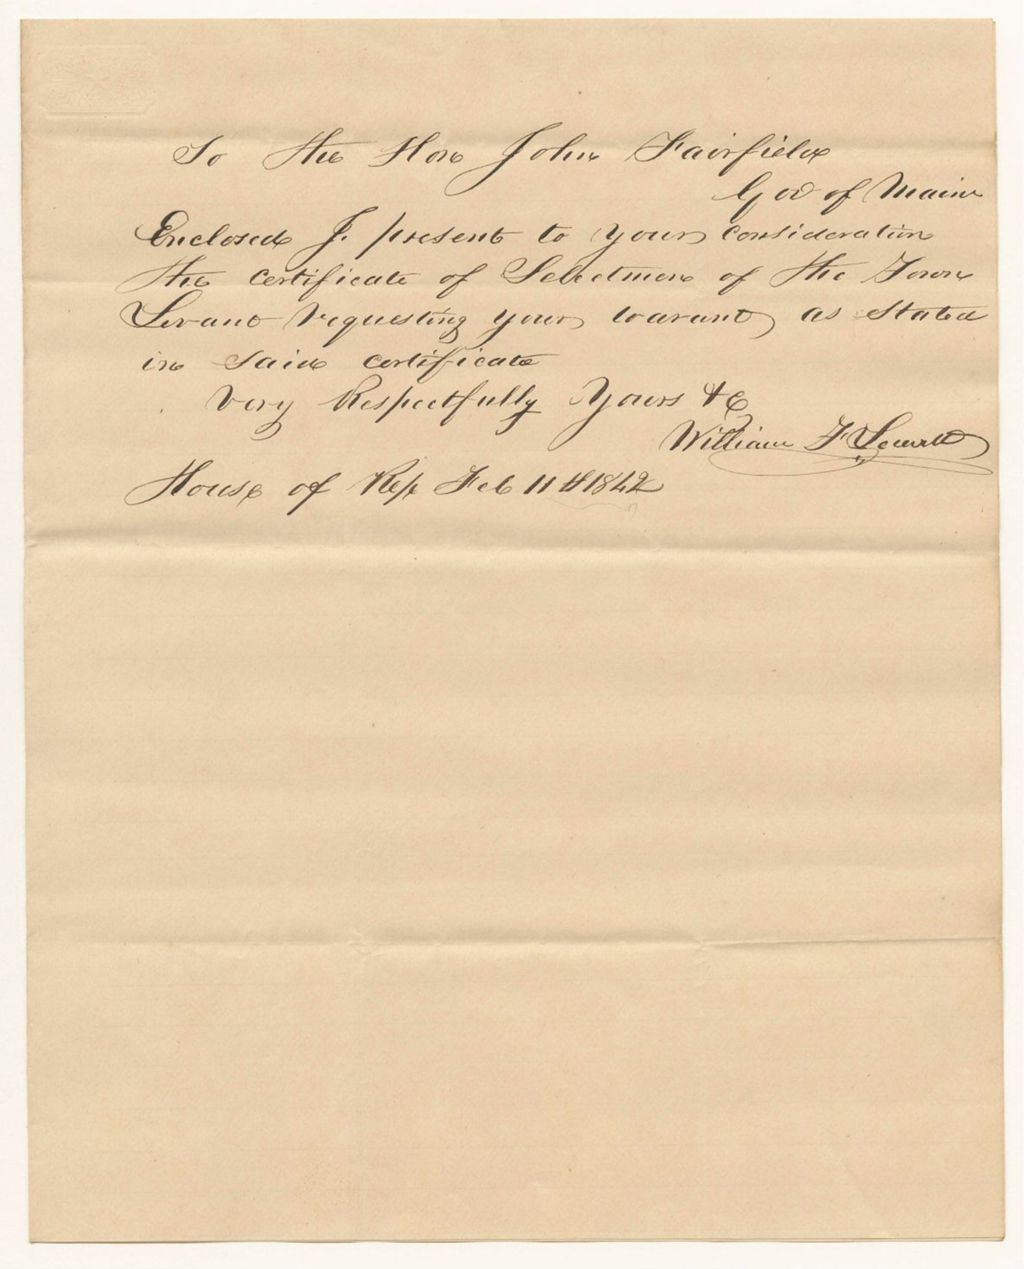 To the Hon John Fairfield
Gov of Maine
Enclosed I present to your consideration
the certificate of Selectmen of the Town
Levant requesting your warant as Stated
in Said certificate
Very Respectfully Yours &c
William F
House of Rep Feb 11th 1842